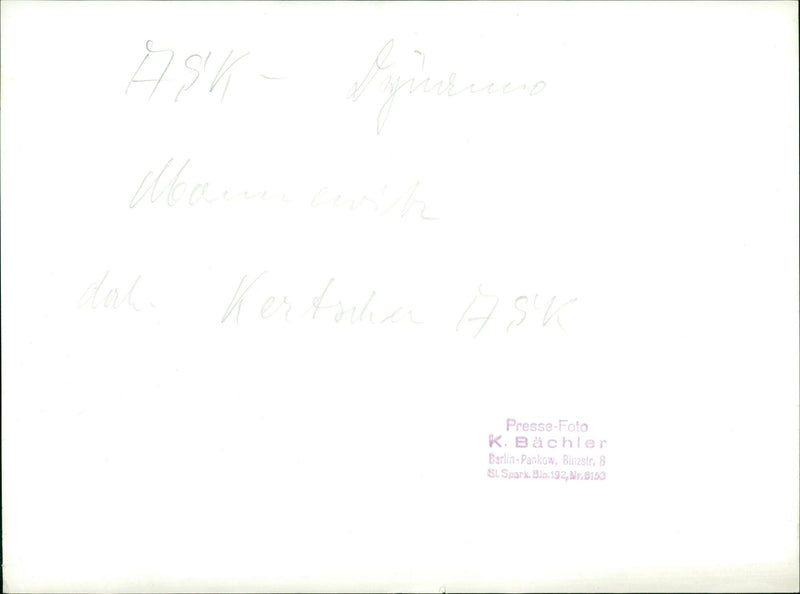 ASK - Dynamo
Mannewitz
dah. Kertscher ASK
Presse-Foto
K. Bächler
Berlin-Pankow, Binzstr. 8
St. Spark. Bln. 192, Nr. 8153